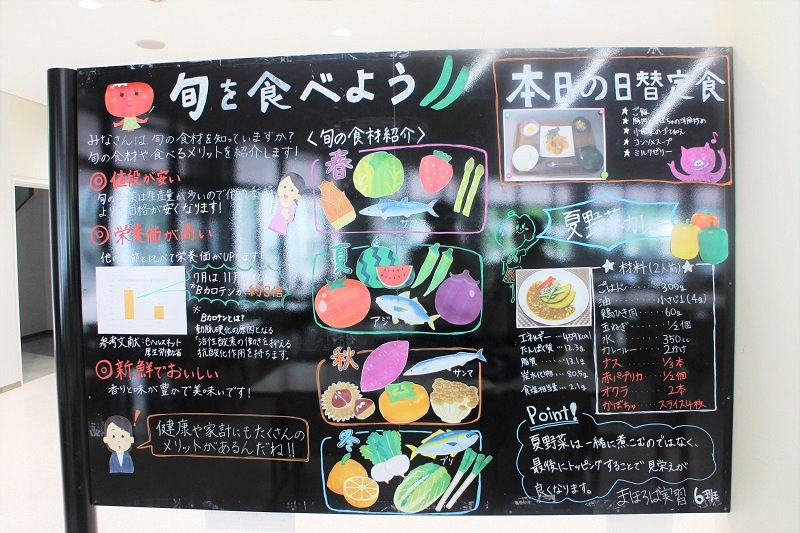 旬を食べよう
みなさんは旬の食材を知っていますか?
旬の食材や食べるメリットを紹介します!
◎値段が安い
旬の
は生産量が多いので他の季
より
価格が安くなります!
◎栄養価が高い
他の
と比べて栄養価がUPします!
7月は11月
*Bカロテンが約2倍
*Bカロテンとは?
動脈硬化の原因となる
活性酸素の働きを抑える
抗酸化作用を持ちます。
参考文献:eヘルスネット
厚生労働省
◎新鮮でおいしい
香りと味が豊かで美味いです!
健康や家計にもたくさんの
メリットがあるんだね!!
<旬の食材紹介>
春
サワラ
夏
アジ
秋
サンマ
冬
ブリ
本日の日替定食
★ご飯
★コンソメスープ
★ミルクゼリー
夏野菜カレー
エネルギー…459kcal
たんぱく質…12.3g
脂質…13.1g
炭水化物…80.5g
食塩相当量…2.1g
★材料(2人前)★
ごはん 300g
油 小さじ1(4g)
鶏ひき肉 60g
玉ねぎ 1/2個
水 350cc
カレールー 2かけ
ナス 1/3本
赤パプリカ 1/2個
オクラ 2本
かぼちゃ スライス4枚
Point!
夏野菜は一緒に煮こむのではなく、
最後にトッピングすることで見栄えが
良くなります。
まほろば実習 6班